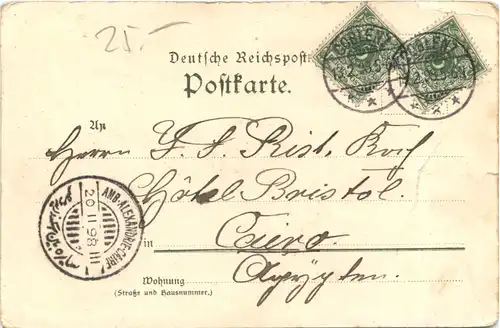 25.-
Deutsche Reichspost
Postkarte.
COBLENZ
COBLENZ
An
Herrn J. J. Rist. Korf
Hôtel Bristol.
in Cairo.
Ägypten.
AMB-ALEXANDRIE-CAIRE
20 II 98 III
Wohnung
(Straße und Hausnummer.)